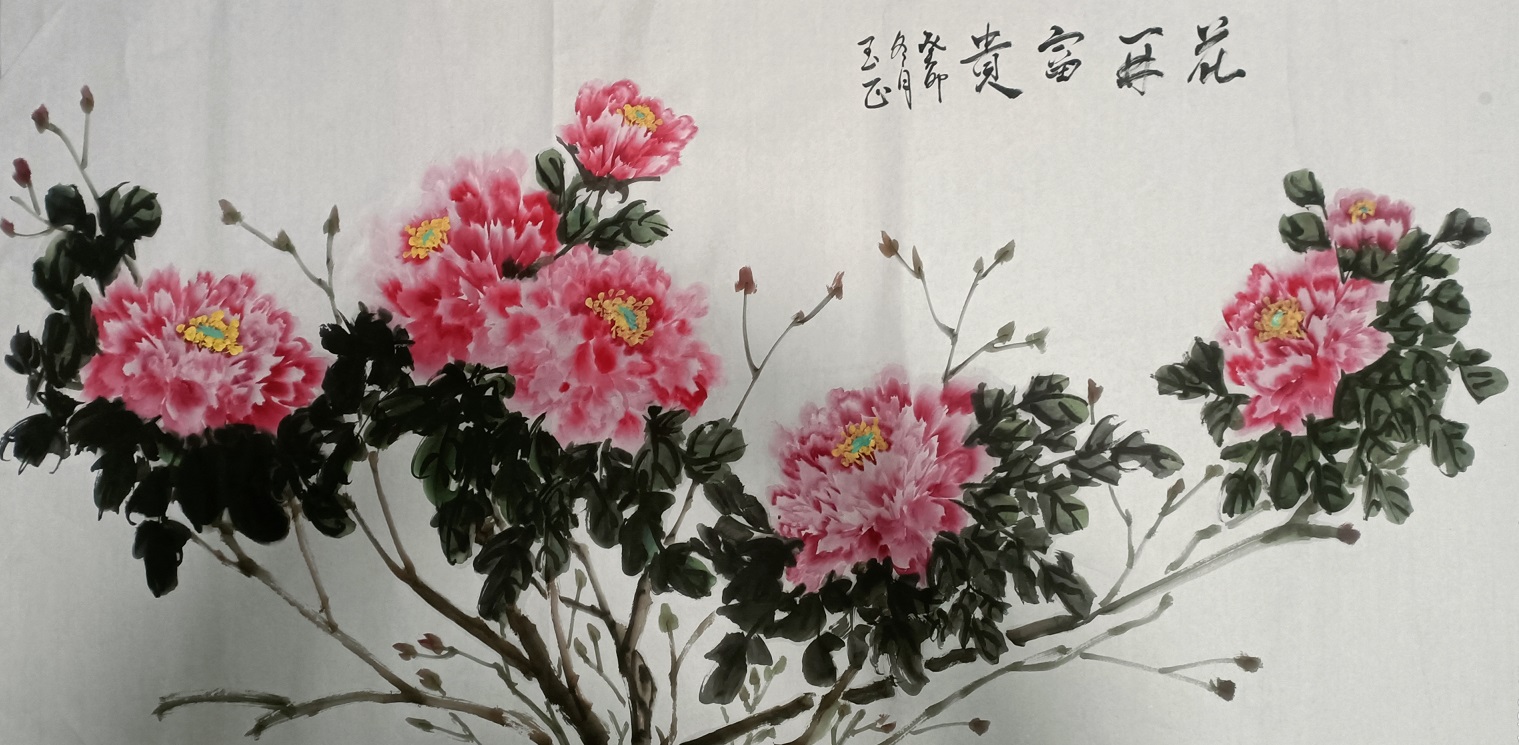 花开富貴
癸卯
冬月
玉正